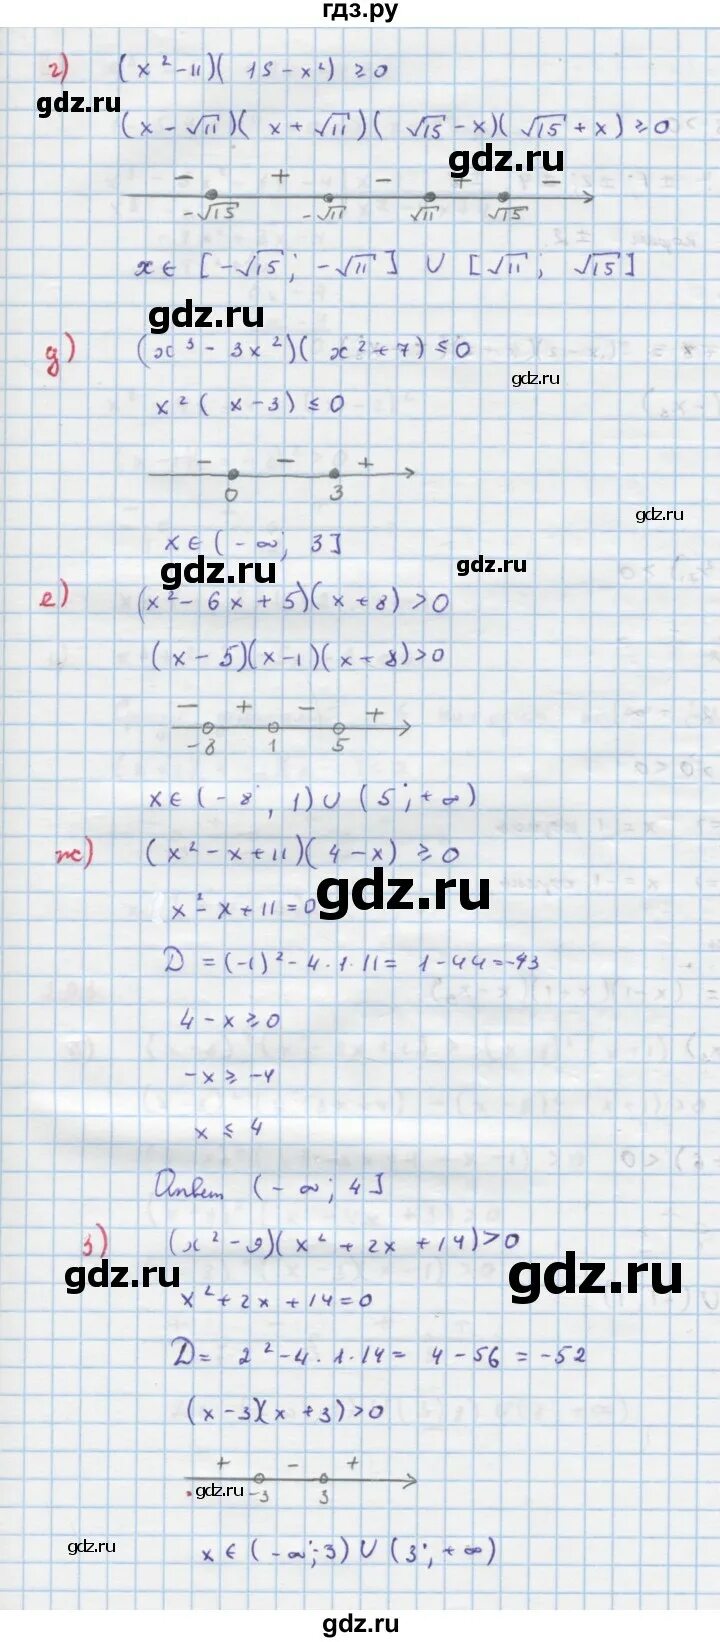 гдз.ру
г) (x² - 11)(15 - x²) ≥ 0
gdz.ru
(x - √11)(x + √11)(√15 - x)(√15 + x) ≥ 0
gdz.ru
- + - + -
-√15 -√11 √11 √15
x ∈ [-√15; -√11] ∪ [√11; √15]
gdz.ru
д) (x³ - 3x²)(x² + 7) ≤ 0
gdz.ru
x²(x - 3) ≤ 0
- - +
0 3
gdz.ru
x ∈ (-∞; 3]
gdz.ru
gdz.ru
е) (x² - 6x + 5)(x + 8) > 0
(x - 5)(x - 1)(x + 8) > 0
- + - +
-8 1 5
x ∈ (-8, 1) ∪ (5; +∞)
ж) (x² - x + 11)(4 - x) ≥ 0
gdz.ru
x² - x + 11 = 0
D = (-1)² - 4·1·11 = 1 - 44 = -43
4 - x ≥ 0
-x ≥ -4
x ≤ 4
Ответ (-∞; 4]
з) (x² - 9)(x² + 2x + 14) > 0
gdz.ru
gdz.ru
x² + 2x + 14 = 0
D = 2² - 4·1·14 = 4 - 56 = -52
(x - 3)(x + 3) > 0
+ - +
gdz.ru
-3 3
gdz.ru
x ∈ (-∞; 3) ∪ (3; +∞)
gdz.ru